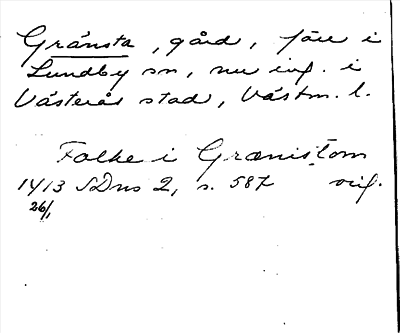 Gränsta, gård, förr i
Lundby sn, nu inf. i
Västerås stad, Västm. l.
Falke i Grænistom
1413 SDns 2, s. 587 orig.
26/1